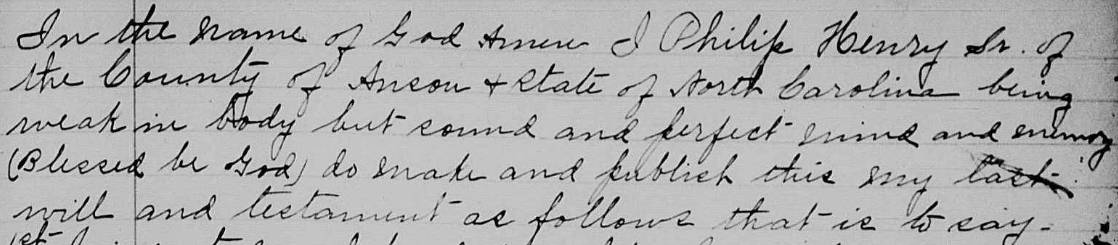 In the name of God Amen I Philip Henry Sr. of
the County of Anson & State of North Carolina being
weak in body but sound and perfect mind and memory
(Blessed be God) do make and publish this my last
will and testament as follows that is to say-
1st